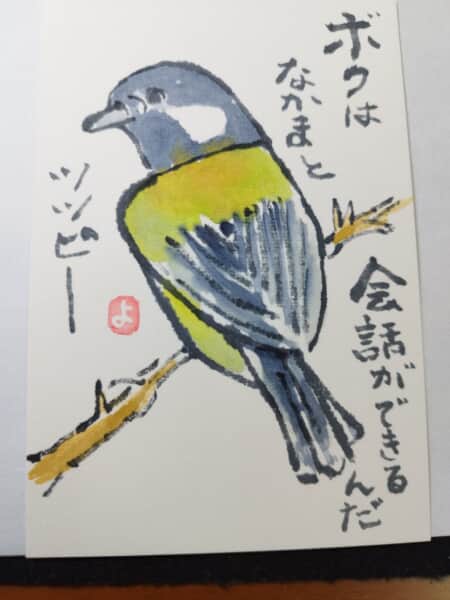 ボクは
なかまと
会話ができるんだ
ツツピー
よ